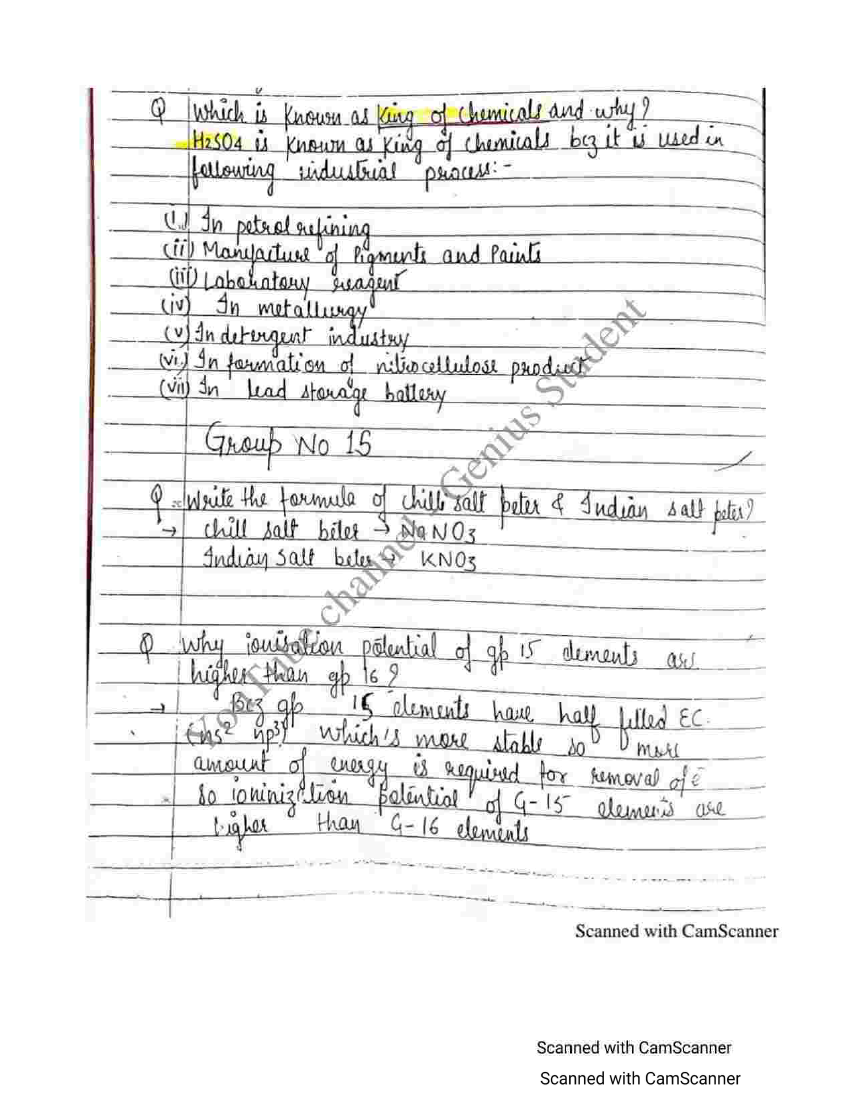 Q Which is known as King of chemicals and why?
H2SO4 is known as king of chemicals bcz it is used in
following industrial process:-
(i.) In petrol refining
(ii) Manufacture of Pigments and Paints
(iii) Laboratory reagent
(iv) In metallurgy
(v) In detergent industry
(vi) In formation of nitrocellulose product
(vii) In lead storage battery
Group No 15
Q Write the formula of chilli salt peter & Indian salt peter?
→ chill salt beter → NaNO3
Indian salt beter → KNO3
Q Why ionisation potential of gp 15 elements are
higher than gp 16?
→ Bcz gp 15 elements have half filled EC.
(ns2 np3) which's more stable so more
amount of energy is required for removal of e
so ioninization potential of G-15 elements are
higher than G-16 elements
YouTube channel Genius Student
Scanned with CamScanner
Scanned with CamScanner
Scanned with CamScanner